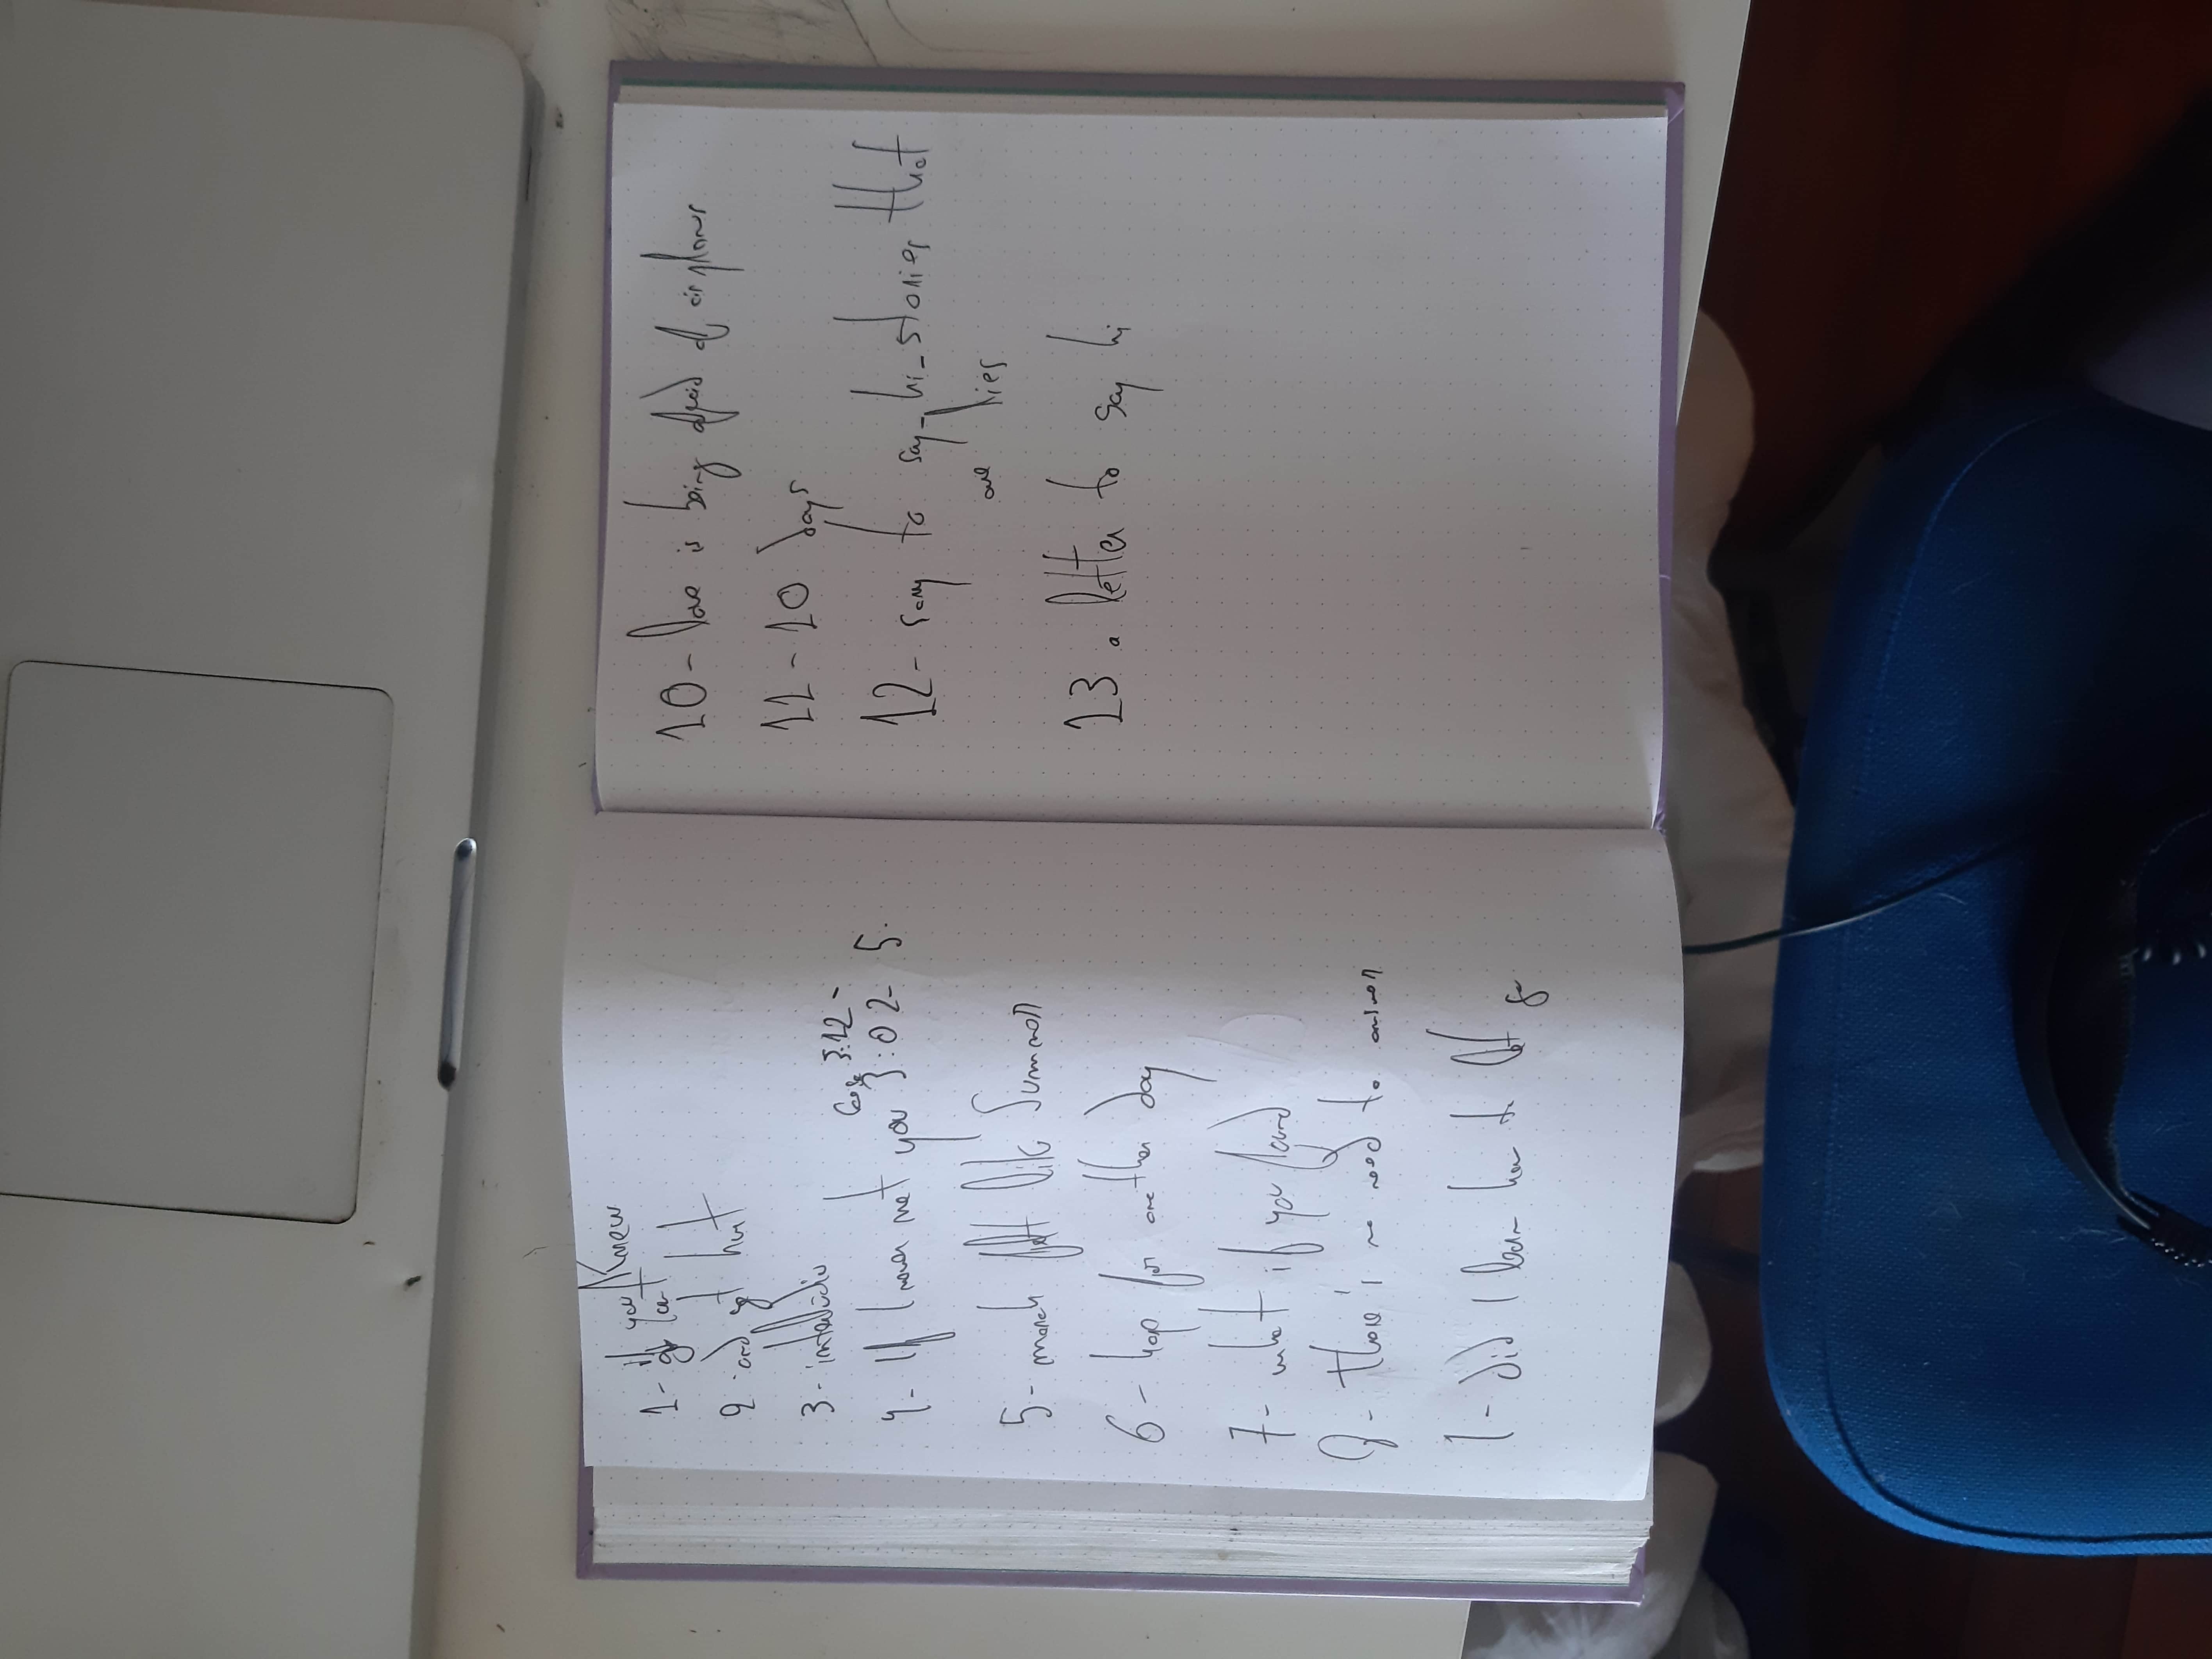 1- if you Knew
2 and get hurt
3- interlúdio
3:12 -
4- If I never met you 3:02- 5.
5- march felt like Summer
6- hop for another day
7- what if you found
8- there's no need to answer
1- did I learn how to let go
10- love is being afraid of airplanes
11-10 days
12- song to say_hi_stories that
are lies
13 a letter to say hi